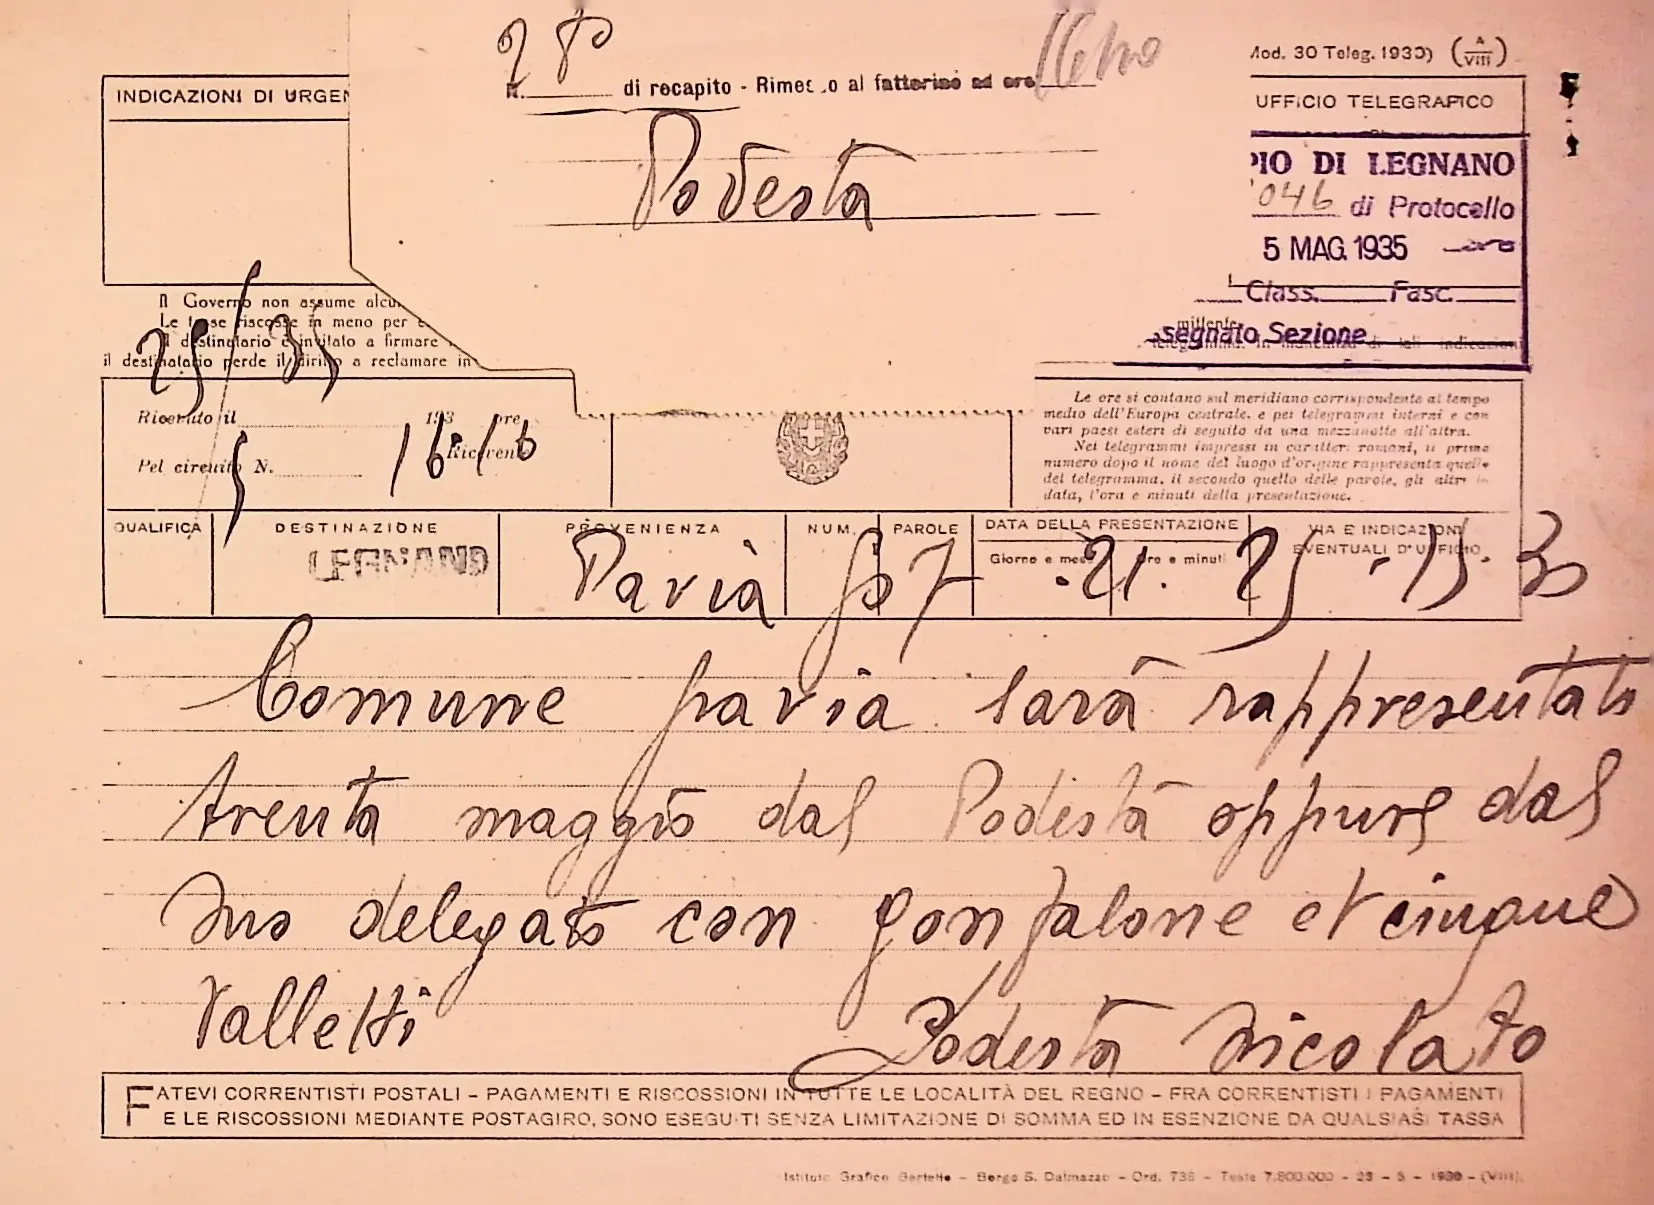 Mod. 30 Teleg. 1930) (A/VIII)
280
N. di recapito - Rimesso al fattorino ad ore
INDICAZIONI DI URGEN
UFFICIO TELEGRAFICO
Podestà
PIO DI LEGNANO
046 di Protocollo
5 MAG. 1935
Class. Fasc.
segnato Sezione
Il Governo non assume alcu
Le tasse riscosse in meno per e
Il destinatario è invitato a firmare
il destinatario perde il diritto a reclamare in
mittente
25/5 35
Ricevuto il 193 ore 16.10
Pel circuito N. Ricevente
Le ore si contano sul meridiano corrispondente al tempo
medio dell'Europa centrale, e pei telegrammi interni e con
vari paesi esteri di seguito da una mezzanotte all'altra.
Nei telegrammi impressi in caratteri romani, il primo
numero dopo il nome del luogo d'origine rappresenta quello
del telegramma, il secondo quello delle parole, gli altri la
data, l'ora e minuti della presentazione.
QUALIFICA DESTINAZIONE PROVENIENZA NUM. PAROLE DATA DELLA PRESENTAZIONE VIA E INDICAZIONI
Giorno e mese Ore e minuti EVENTUALI D'UFFICIO
LEGNANO Pavia 21. 25 - 15.30
Comune pavia sarà rappresentato
trenta maggio dal Podestà oppure dal
suo delegato con gonfalone et cinque
Valletti Podestà Nicolato
FATEVI CORRENTISTI POSTALI - PAGAMENTI E RISCOSSIONI IN TUTTE LE LOCALITÀ DEL REGNO - FRA CORRENTISTI I PAGAMENTI
E LE RISCOSSIONI MEDIANTE POSTAGIRO, SONO ESEGUITI SENZA LIMITAZIONE DI SOMMA ED IN ESENZIONE DA QUALSIASI TASSA
Istituto Grafico Bertello - Borgo S. Dalmazzo - Ord. 736 - Teste 7.800.000 - 23 - 5 - 1930 - (VIII).